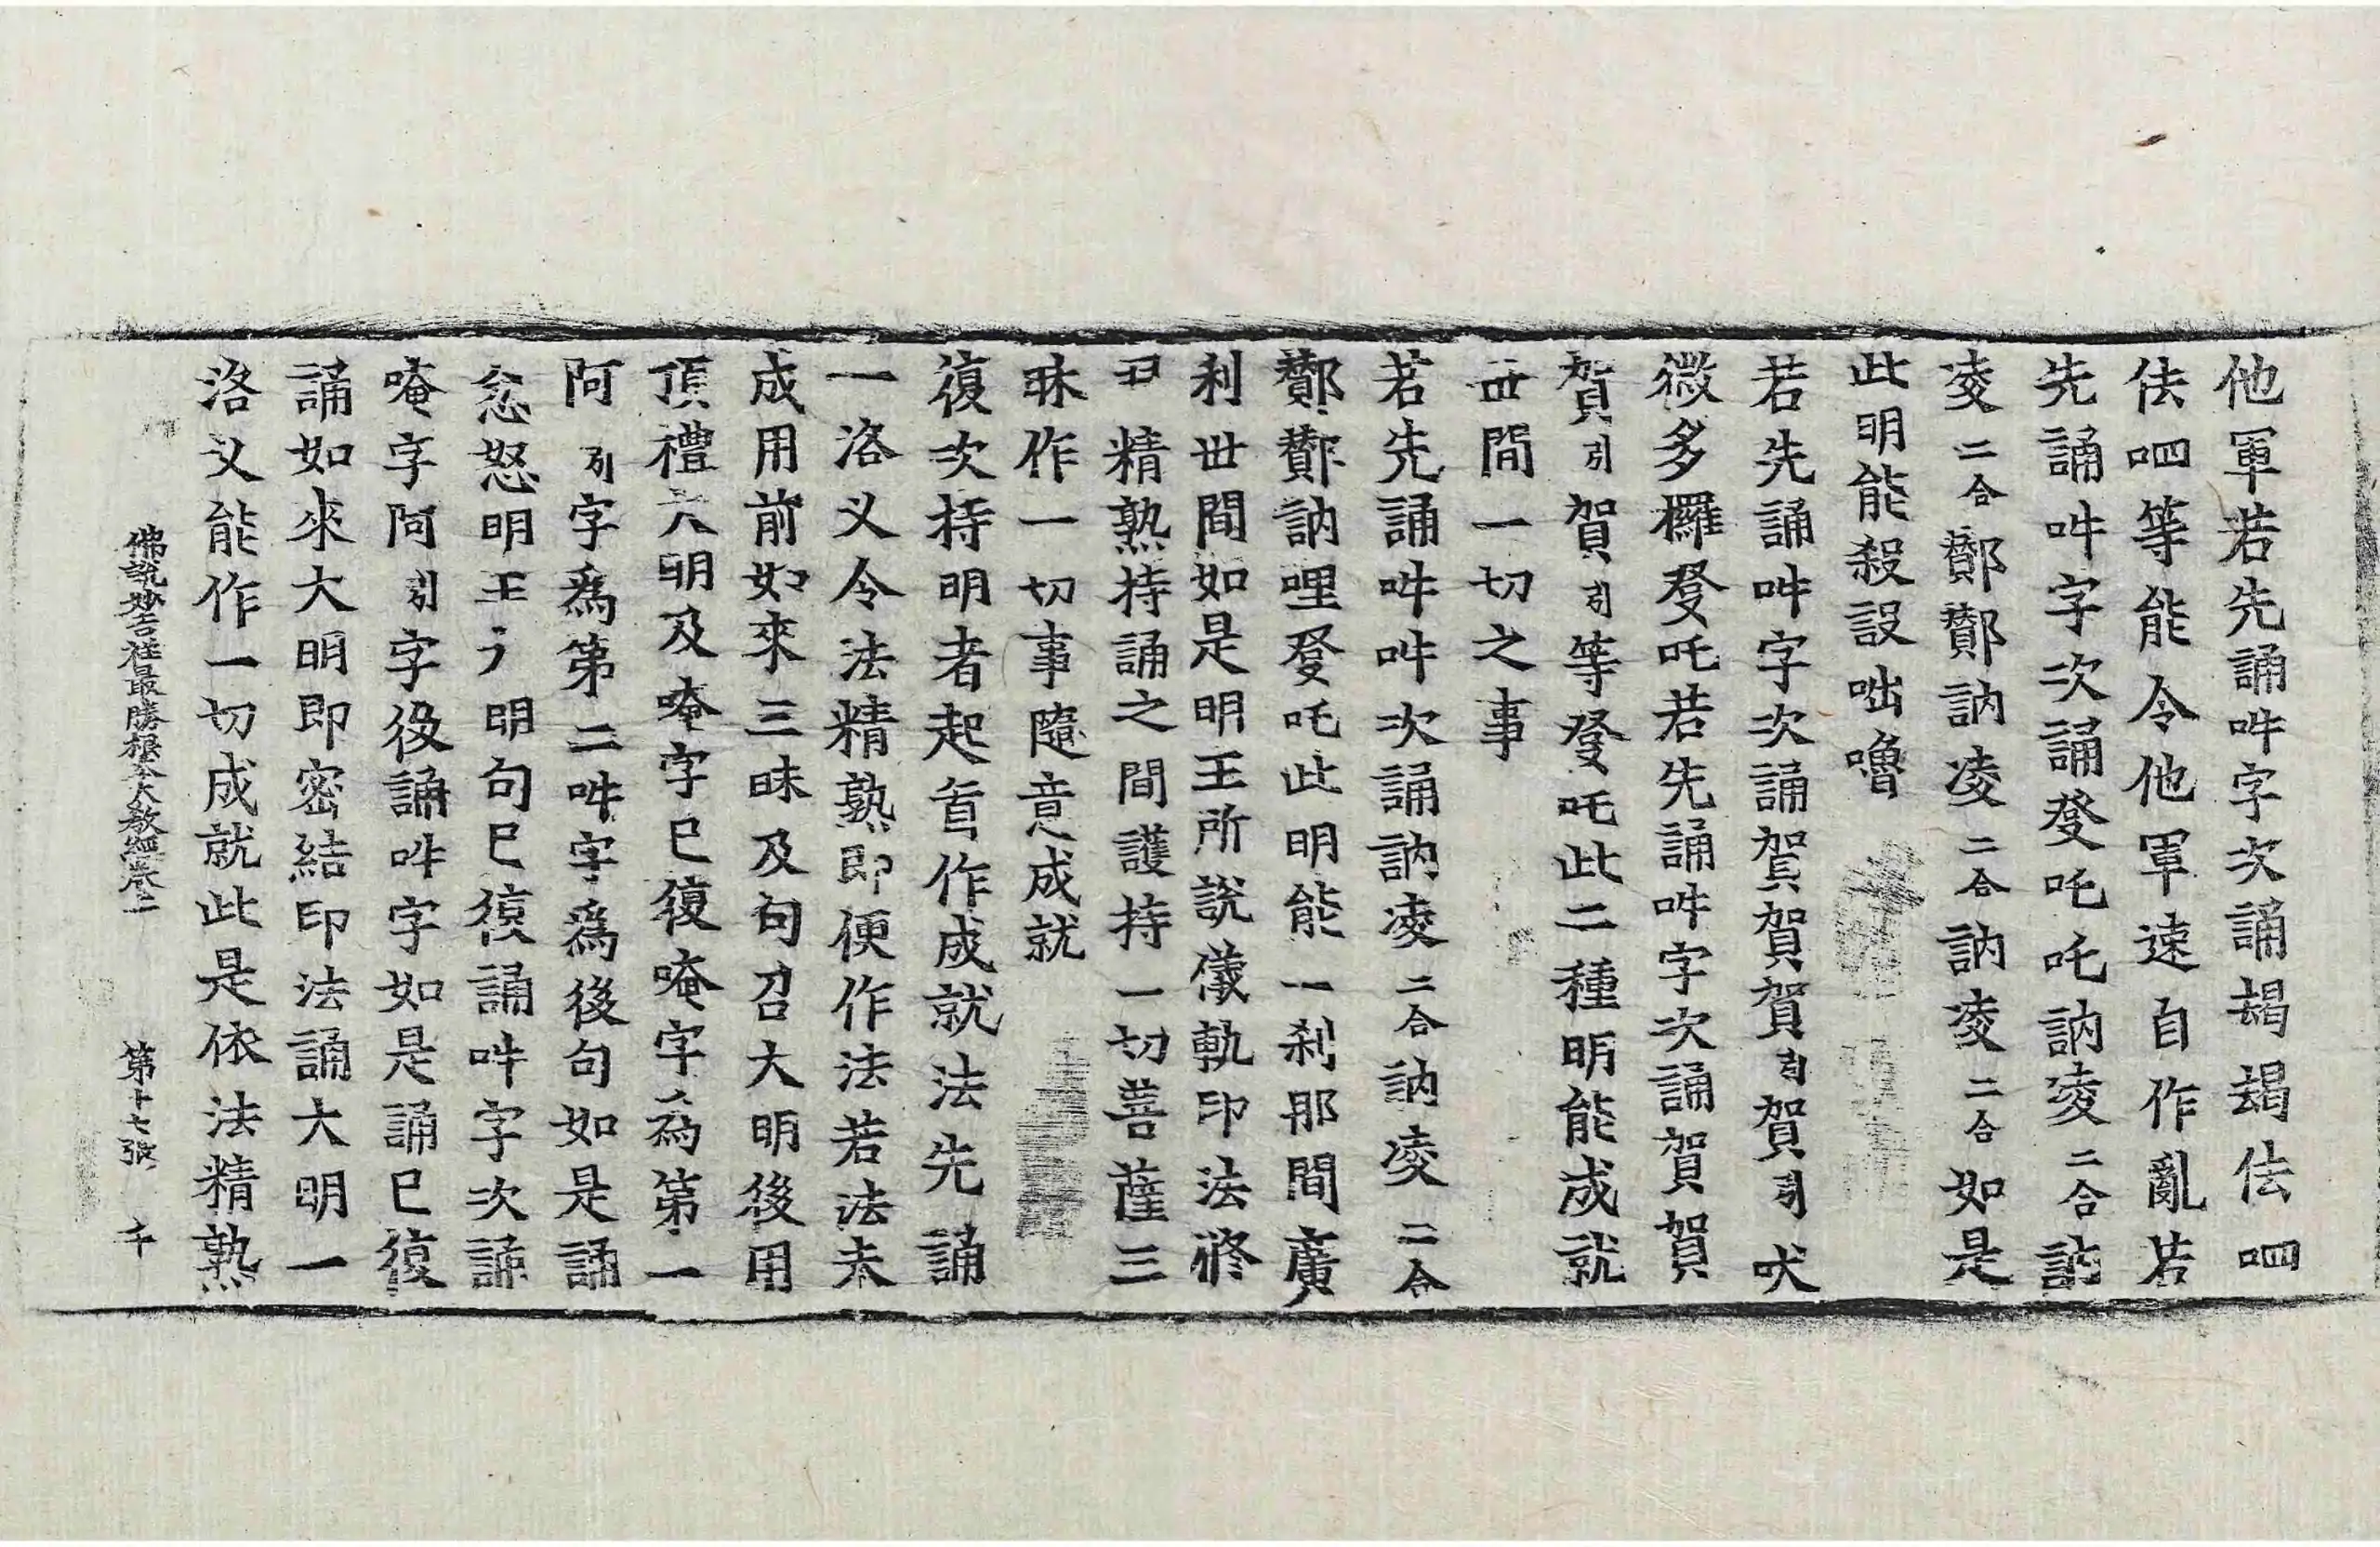 他軍若先誦吽字次誦朅朅佉呬
佉呬等能令他軍速自作亂若
先誦吽字次誦癹吒吒訥凌二合訥
凌二合酇酇訥凌二合訥凌二合如是
此明能殺設咄嚕
若先誦吽字次誦賀賀賀引賀引吠
微多欏癹吒若先誦吽字次誦賀賀
賀引賀引等癹吒此二種明能成就
世間一切之事
若先誦吽吽次誦訥凌二合訥凌二合
酇酇訥哩癹吒此明能一刹那間廣
利世間如是明王所說儀軌印法修
習精熟持誦之間護持一切菩薩三
昧作一切事隨意成就
復次持明者起首作成就法先誦
一洛叉令法精熟即便作法若法未
成用前如來三昧及句召大明後用
頂禮六明及唵字已復唵字為第一
阿引字爲第二吽字爲後句如是誦
忿怒明王彡明句已復誦吽字次誦
唵字阿引字後誦吽字如是誦已復
誦如來大明即密結印法誦大明一
洛叉能作一切成就此是依法精熟
佛說妙吉祥最勝根本大教經卷二 第十七張 千